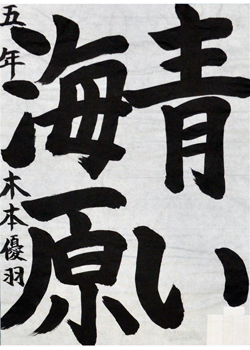 青い
海原
五年 木本優羽